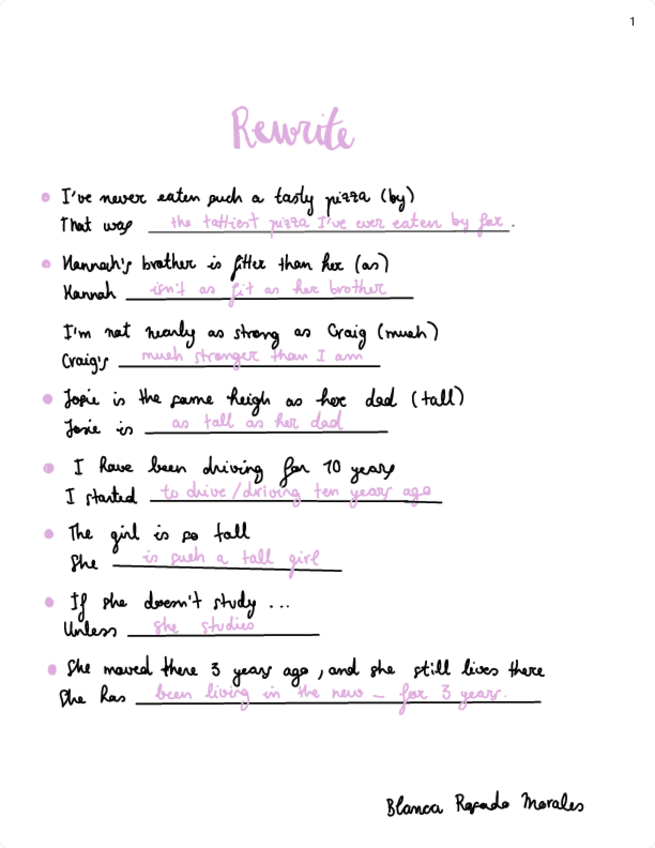 1
Rewrite
I've never eaten such a tasty pizza (by)
That was the tattiest pizza I've ever eaten by far.
Hannah's brother is fitter than her (as)
Hannah isn't as fit as her brother
I'm not nearly as strong as Craig (much)
Craig's much stronger than I am
Josie is the same heigh as her dad (tall)
Josie is as tall as her dad
I have been driving for 10 years
I started to drive/driving ten years ago
The girl is so tall
She is such a tall girl
If she doesn't study ...
Unless she studies
She moved there 3 years ago, and she still lives there
She has been living in the new – for 3 years.
Blanca Morales